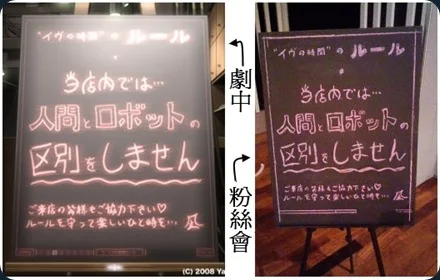 "イヴの時間"の ルール
当店内では…
人間とロボットの
区別をしません
ご来店の皆様もご協力下さい♡
ルールを守って楽しいひと時を…
(C) 2008 Ya
劇中
粉絲會
"イヴの時間"の ルール
当店内では…
人間とロボットの
区別をしません
ご来店の皆様もご協力下さい♡
ルールを守って楽しいひと時を…